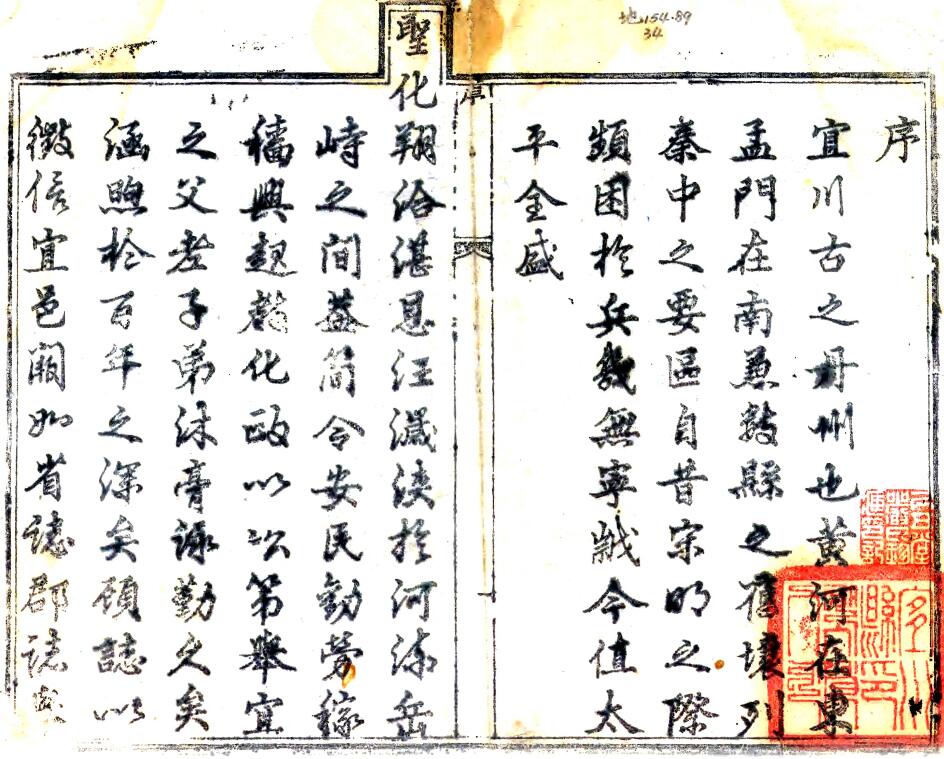 地154.89
34
序
宜川古之丹州也黃河在東
孟門在南兼數縣之舊壤列
秦中之要區自昔宋明之際
頻困於兵幾無寧諴今值太
平全盛
聖化翔洽湛恩汪濊浹於河流岳
峙之間蓋簡令安民勸勞稼
穡興起教化政以次第舉宜
之父老子弟沐膏詠勤久矣
涵煦於百年之深矣顧誌以
徵信宜邑闕如省誌郡誌